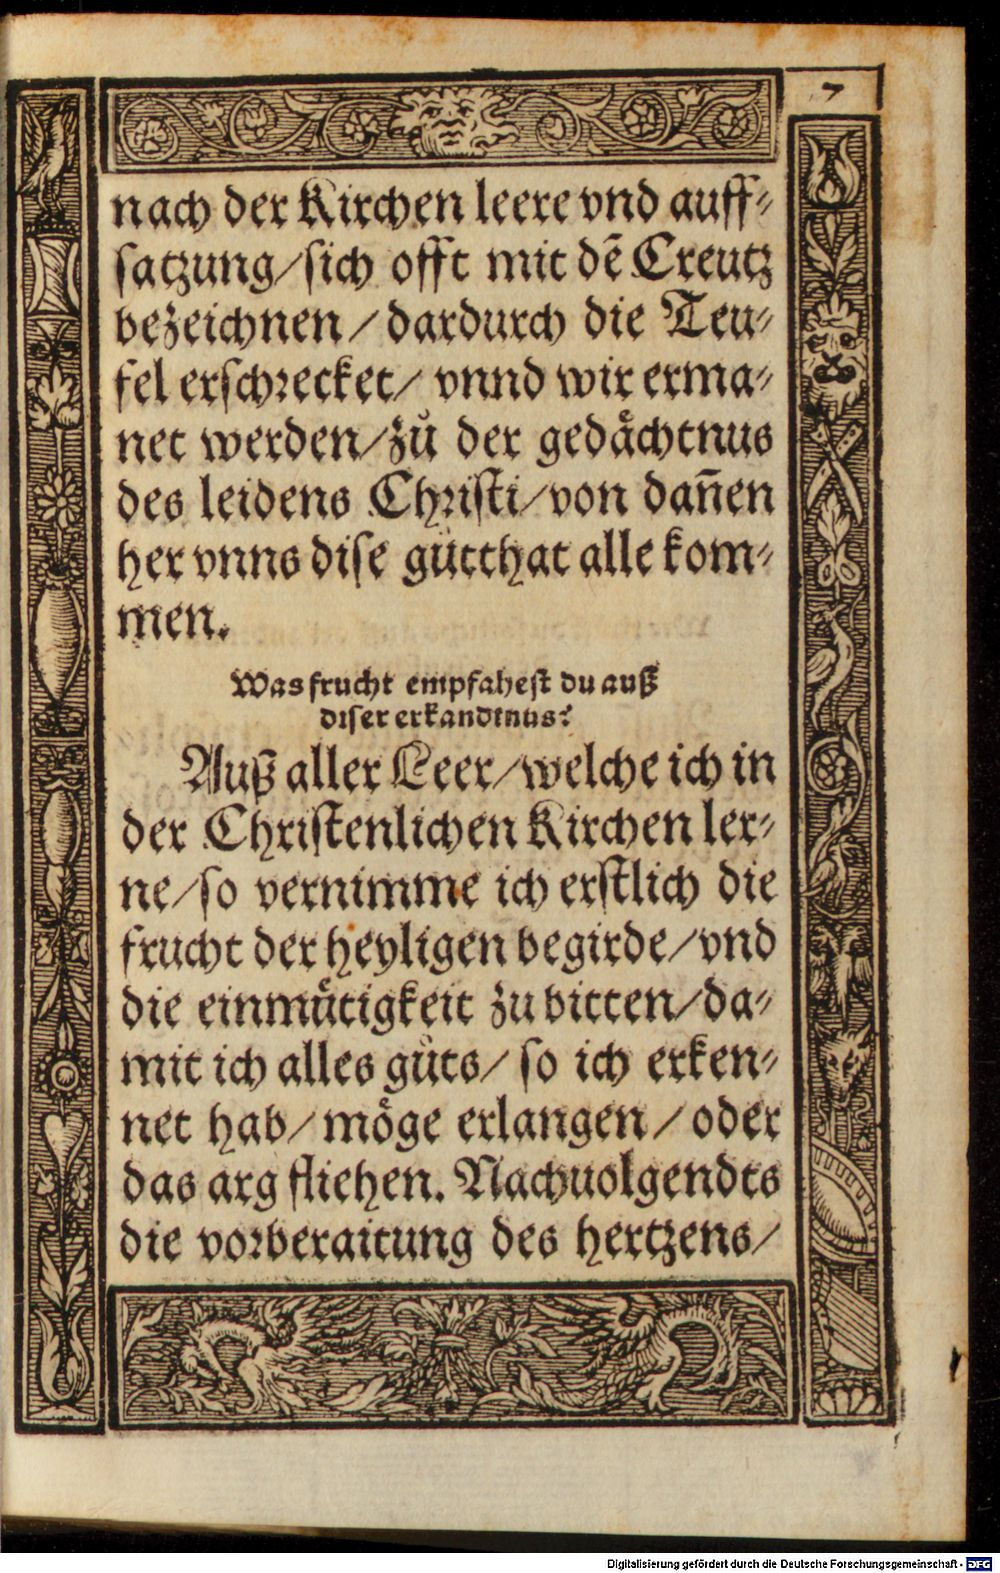 7
nach der Kirchen leere vnd auff⸗
ſatzung/ſich offt mit dē Creutz
bezeichnen/dardurch die Teu⸗
fel erſchꝛecket/ vnnd wir erma⸗
net werden/zů der gedaͤchtnus
des leidens Chꝛiſti/von dan̄en
her vnns diſe gůtthat alle kom⸗
men.
Was frucht empfaheſt du auß
diſer erkandtnus?
Auß aller Leer/welche ich in
der Chriſtenlichen Kirchen ler⸗
ne/ſo vernimme ich erſtlich die
frucht der heyligen begirde/vnd
die einmuͤtigkeit zu bitten/da⸗
mit ich alles gůts/ ſo ich erken⸗
net hab/moͤge erlangen/oder
das arg fliehen. Nachuolgendts
die voꝛberaitung des hertzens/
Digitalisierung gefördert durch die Deutsche Forschungsgemeinschaft - DFG